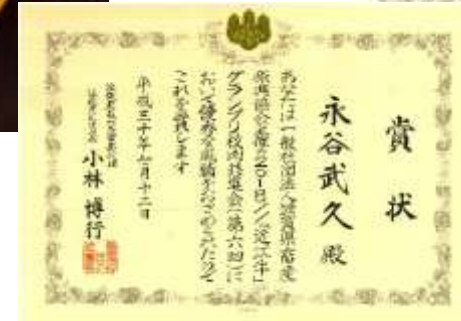 賞状
永谷武久 殿
あなたは一般社団法人滋賀県畜産
振興協会主催の
グランプリ枝肉共進会(第六回)に
おいて優秀な成績をおさめられたので
これを賞します
平成三十年 月十二日
小林 博行